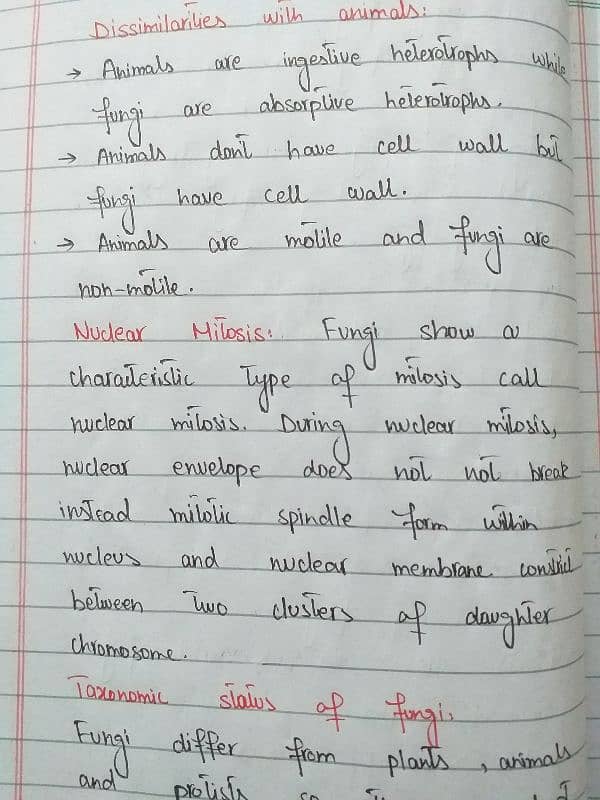 Dissimilarities with animals:
→ Animals are ingestive heterotrophs while
fungi are absorptive heterotrophs.
→ Animals don't have cell wall but
fungi have cell wall.
→ Animals are motile and fungi are
non-motile.
Nuclear Mitosis: Fungi show a
characteristic Type of mitosis call
nuclear mitosis. During nuclear mitosis,
nuclear envelope does not not break
instead mitotic spindle form within
nucleus and nuclear membrane constrict
between Two clusters of daughter
chromosome.
Taxonomic status of fungi.
Fungi differ from plants, animals
and protists so